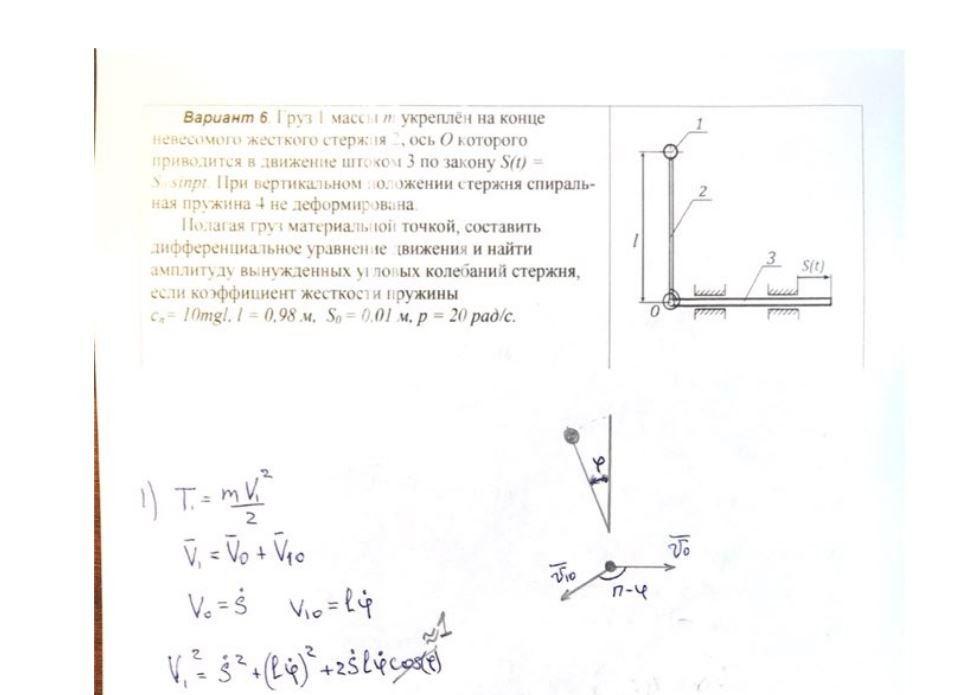 Вариант 6. Груз 1 массы m укреплён на конце
невесомого жесткого стержня 2, ось O которого
приводится в движение штоком 3 по закону S(t) =
S₀ sinpt. При вертикальном положении стержня спираль-
ная пружина 4 не деформирована.
Полагая груз материальной точкой, составить
дифференциальное уравнение движения и найти
амплитуду вынужденных угловых колебаний стержня,
если коэффициент жесткости пружины
cₙ = 10mgl, l = 0,98 м, S₀ = 0,01 м, p = 20 рад/с.
1
2
l
3
S(t)
O
φ
1) T = mV₁²/2
V̄₁ = V̄₀ + V̄₁₀
V₀ = Ṡ V₁₀ = lφ̇
V₁² = Ṡ² + (lφ̇)² + 2Ṡlφ̇cos(φ) ≈1
v̄₁₀
v̄₀
π-φ